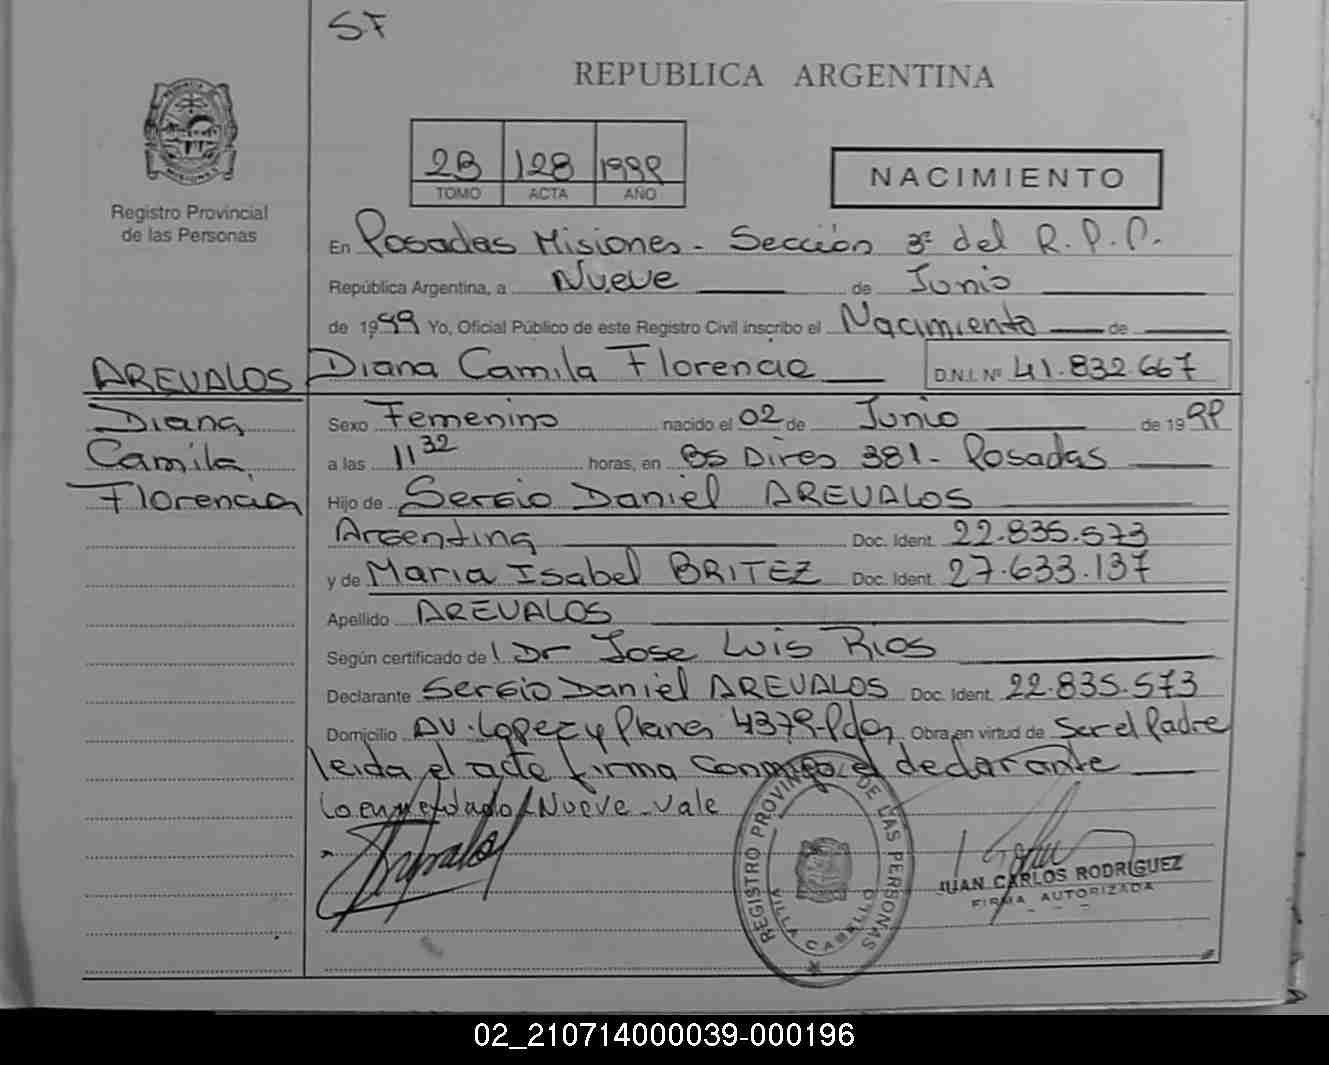 SF
REPUBLICA ARGENTINA
2B 128 1999
TOMO ACTA AÑO
NACIMIENTO
Registro Provincial
de las Personas
En Posadas Misiones - Sección 3ª del R.P.P.
República Argentina, a Nueve de Junio
de 1999 Yo, Oficial Público de este Registro Civil inscribo el Nacimiento de
AREVALOS Diana Camila Florencia D.N.I. Nº 41.832.667
Diana
Camila
Florencia
Sexo Femenino nacido el 02 de Junio de 1999
a las 11 32 horas, en Bs Aires 381 - Posadas
Hijo de Sergio Daniel AREVALOS
Argentina Doc. Ident. 22.835.573
y de Maria Isabel BRITEZ Doc. Ident. 27.633.137
Apellido AREVALOS
Según certificado de l Dr Jose Luis Rios
Declarante Sergio Daniel AREVALOS Doc. Ident. 22.835.573
Domicilio AV. Lopez y Planes 4379-Pdas Obra en virtud de Ser el Padre
leida el acta firma conmigo el declarante
lo enmendado/Nueve-vale
REGISTRO PROVINCIAL DE LAS PERSONAS
VILLA CABELLO
JUAN CARLOS RODRIGUEZ
FIRMA AUTORIZADA
02_210714000039-000196